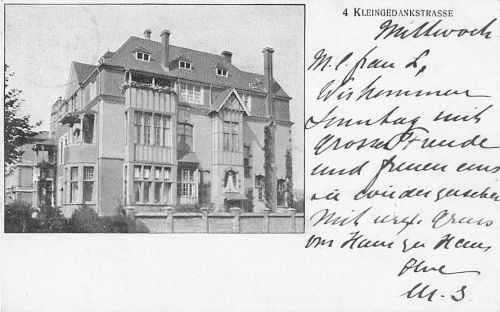 4 KLEINGEDANKSTRASSE
Mittwoch
M. l. frau L,
Wir kommen
Sonntag mit
grosser Freude
und freuen uns
sie wiedergesehen
Mit
von Haus zu Haus
Ihre
M. S.